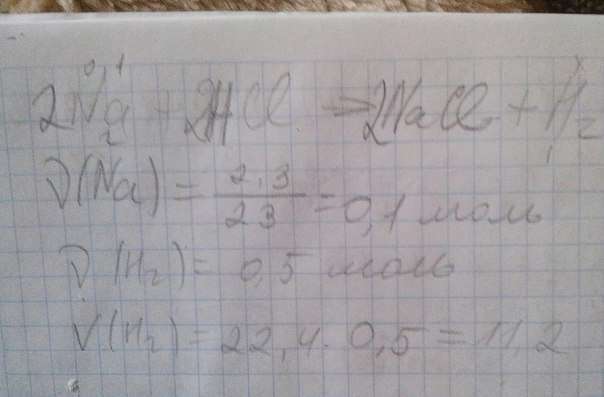 0,1 x
2Na + 2HCl = 2NaCl + H₂
2 1
ν(Na) = 2,3/23 = 0,1 моль
ν(H₂) = 0,5 моль
V(H₂) = 22,4 · 0,5 = 11,2